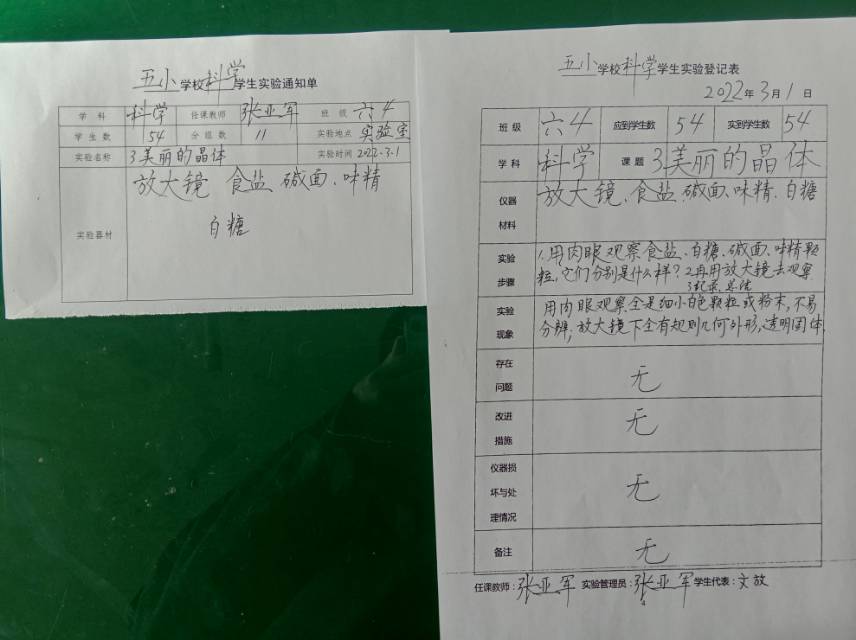 五小学校科学学生实验通知单
学科 科学 任课教师 张亚军 班级 六4
学生数 54 分组数 11 实验地点 实验室
实验名称 3美丽的晶体 实验时间 2022.3.1
实验器材 放大镜 食盐 碱面、味精
白糖
五小学校科学学生实验登记表
2022年3月1日
班级 六4 应到学生数 54 实到学生数 54
学科 科学 课题 3美丽的晶体
仪器材料 放大镜、食盐、碱面、味精、白糖
实验步骤 1.用肉眼观察食盐、白糖、碱面、味精颗
粒,它们分别是什么样?2再用放大镜去观察
3记录、总结
实验现象 用肉眼观察全是细小白色颗粒或粉末,不易
分辨,放大镜下全有规则几何外形,透明固体.
存在问题 无
改进措施 无
仪器损坏与处理情况 无
备注 无
任课教师:张亚军 实验管理员:张亚军 学生代表:文放